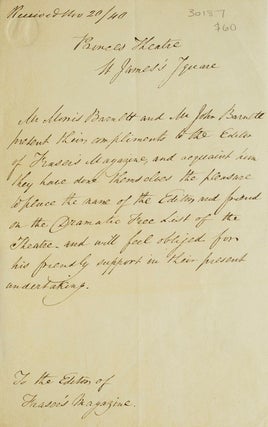 Received Nov 20/40
30187
$60
Princes Theatre
St James's Square
Mr Morris Barnett and Mr John Barnett
present their compliments to the Editor
of Fraser's Magazine, and acquaint him
they have done themselves the pleasure
to place the name of the Editor and friend
on the Dramatic Free List of the
Theatre and will feel obliged for
his friendly support in their present
undertaking.
To the Editor of
Fraser's Magazine.